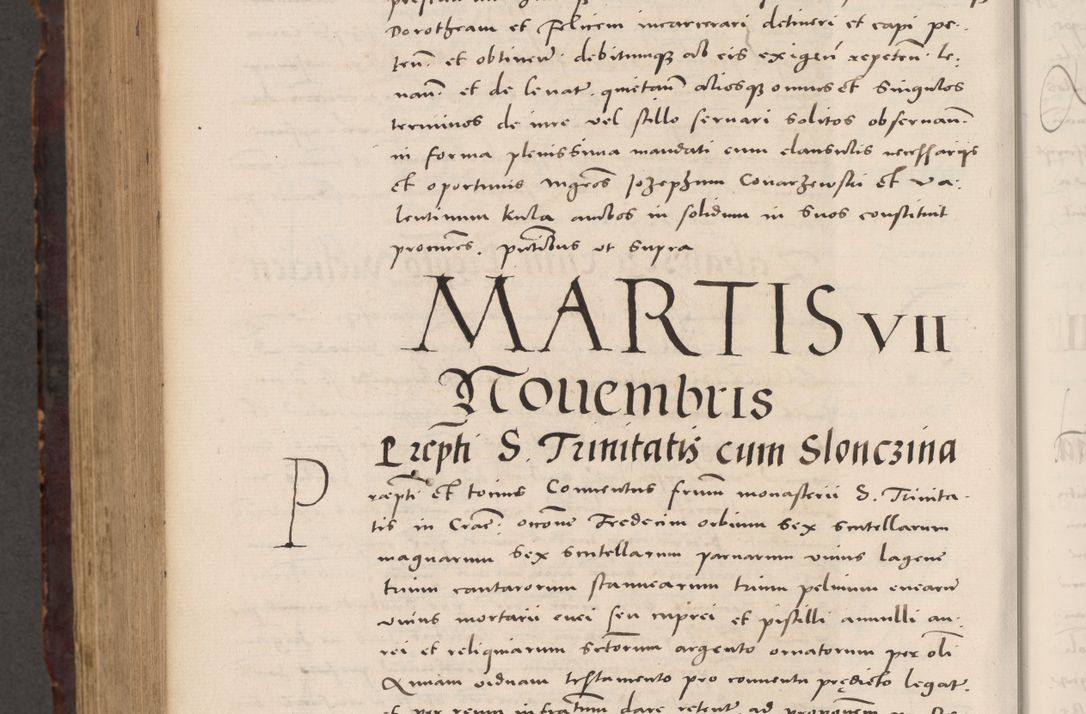 Dorotheam et Felicem incarcerari detineri et capi pe-
ten̄. et obtinen̄. debitumqꝫ ab eis exigen̄ repeten̄. le-
uan̄. et de leuat. quietan̄ aliosqꝫ omnes et singulos
terminos de iure vel stillo seruari solitos obseruan̄.
in forma plenissima mandati cum clausulis necessariis
et oportunis Mgr̄os Jozephum Conarzewski et Va-
lentinum Kula ambos in solidum in suos constituit
procurr̄es. pnt̄ibus vt supra
MARTIS VII
Nouembris
Præpt̄i S. Trinitatis cum Slonczina
Præpt̄i et totius Conuentus frum̄ monasterii S. Trinita-
tis in Crac̄. occōne Tredecim orbium sex scutellarum
magnarum sex scutellarum paruarum vnius lagene
trium cantarorum stannearum trium peluium enearū
vnius mortarii enei seu cuprei et pistilli annulli au-
rei et reliquiarum sctōrum argento ornatorum per oli
Annam viduam testamento pro conuentu prędicto legat.